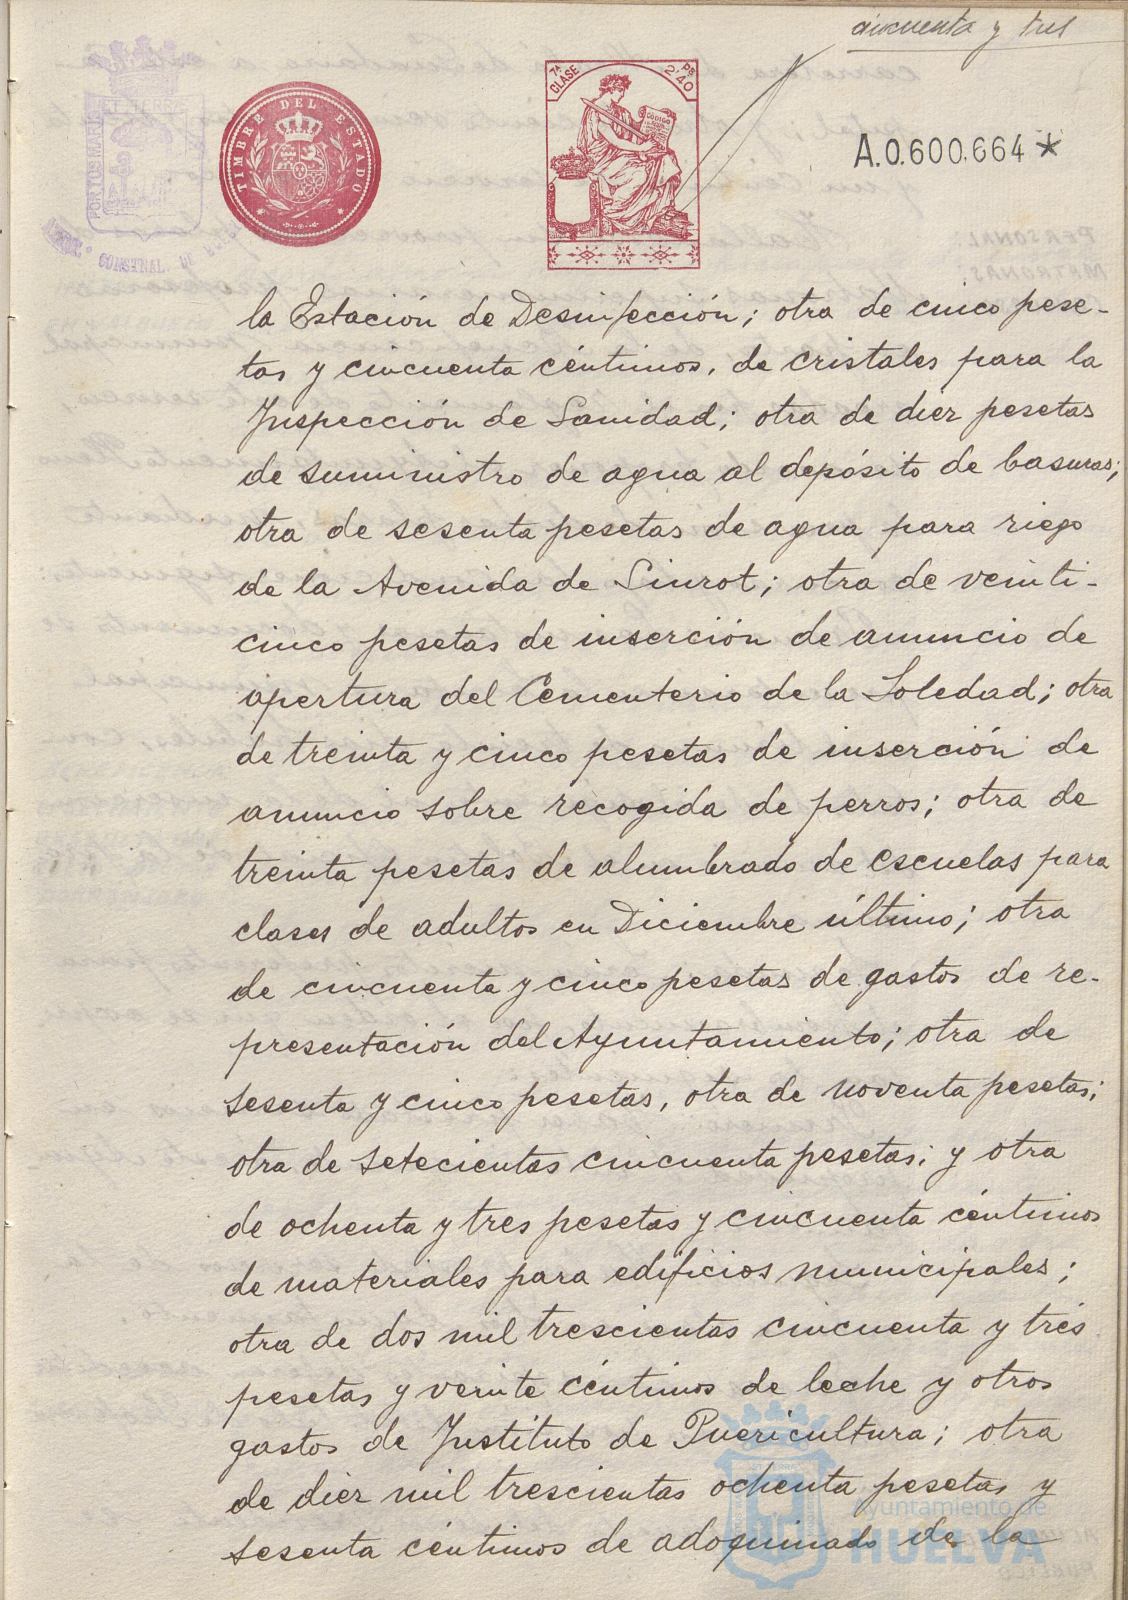 cincuenta y tres
PORTUS MARIS ET TERRE
CONSTNAL. DE
TIMBRE DEL ESTADO
7ª CLASE
Ps 2'40
CODIGO
A.0.600.664 *
la Estación de Desinfección; otra de cinco pese-
tas y cincuenta céntimos, de cristales para la
Inspección de Sanidad; otra de diez pesetas
de suministro de agua al depósito de basuras;
otra de sesenta pesetas de agua para riego
de la Avenida de Siurot; otra de veinti-
cinco pesetas de inserción de anuncio de
apertura del Cementerio de la Soledad; otra
de treinta y cinco pesetas de inserción de
anuncio sobre recogida de perros; otra de
treinta pesetas de alumbrado de escuelas para
clases de adultos en Diciembre último; otra
de cincuenta y cinco pesetas de gastos de re-
presentación del Ayuntamiento; otra de
sesenta y cinco pesetas, otra de noventa pesetas;
otra de setecientas cincuenta pesetas; y otra
de ochenta y tres pesetas y cincuenta céntimos
de materiales para edificios municipales;
otra de dos mil trescientas cincuenta y tres
pesetas y veinte céntimos de leche y otros
gastos de Instituto de Puericultura; otra
de diez mil trescientas ochenta pesetas y
sesenta céntimos de adoquinado de la
Ayuntamiento de
HUELVA